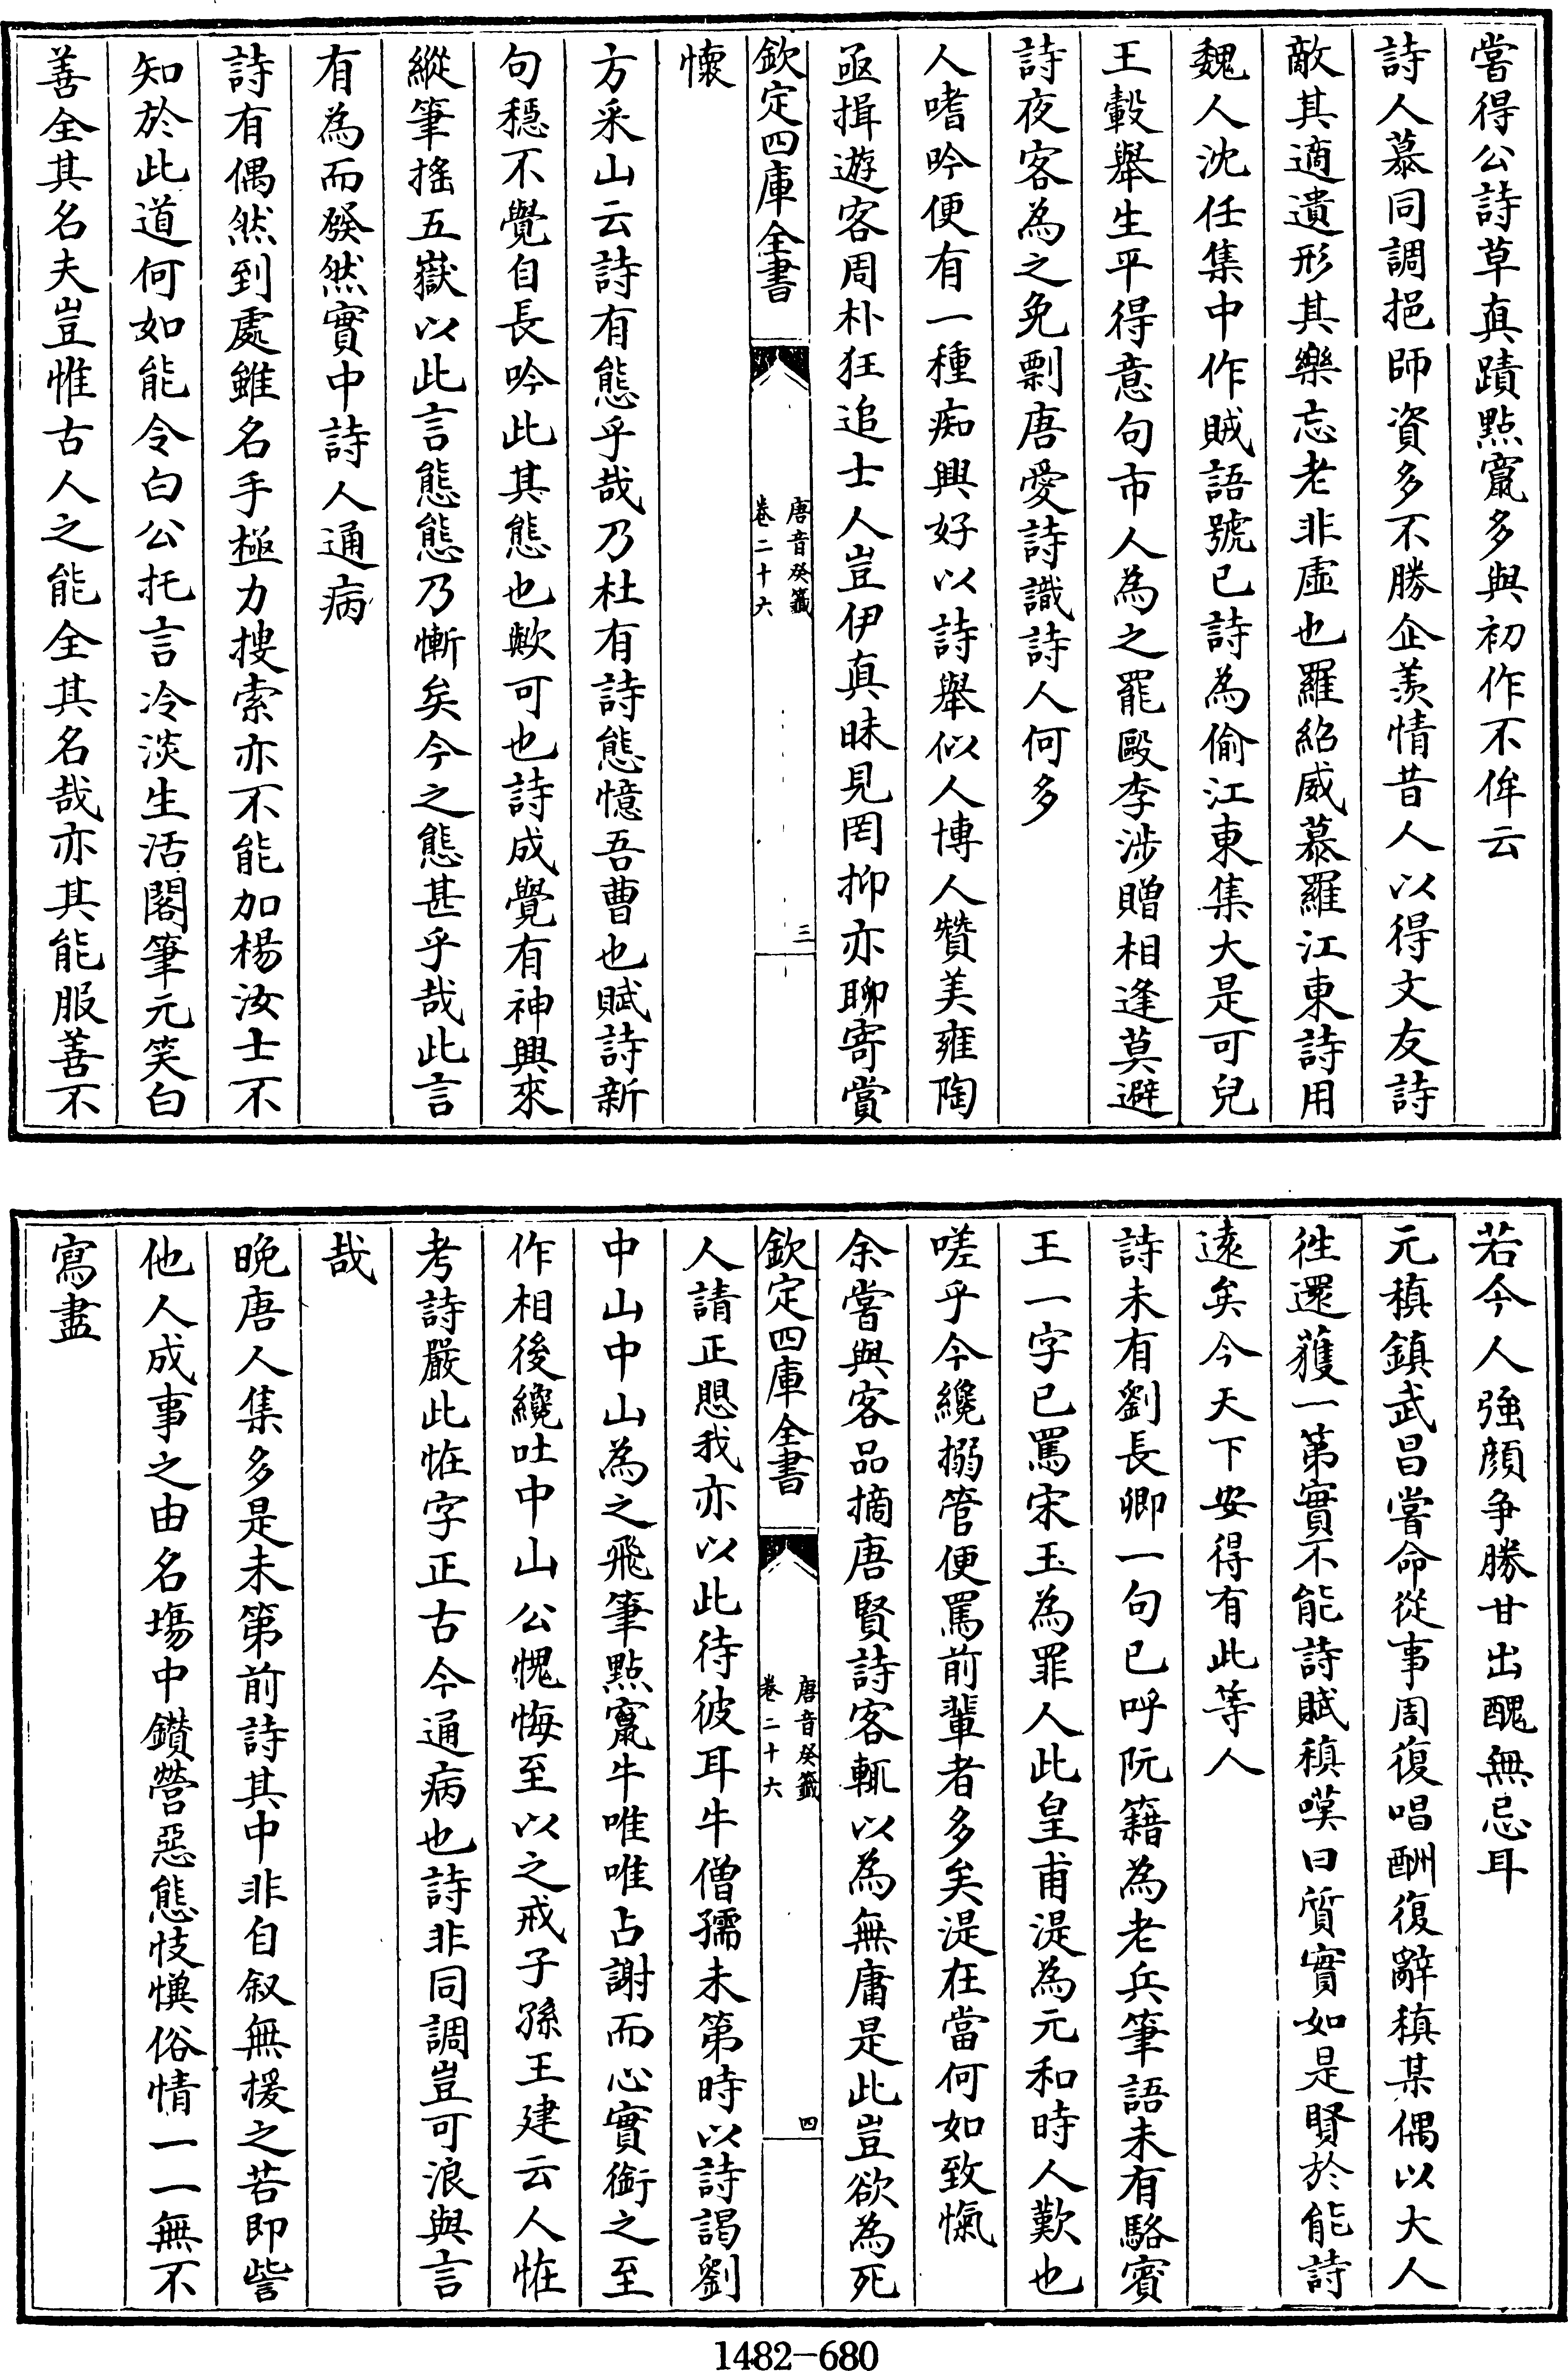 嘗得公詩草真蹟點竄多與初作不侔云
詩人慕同調挹師資多不勝企羨情昔人以得文友詩
敵其適遺形其樂忘老非虛也羅紹威慕羅江東詩用
魏人沈任集中作賊語號已詩為偷江東集大是可兒
王轂舉生平得意句市人為之罷毆李涉贈相逢莫避
詩夜客為之免剽唐愛詩識詩人何多
人嗜吟便有一種痴興好以詩舉似人博人贊美雍陶
亟揖遊客周朴狂追士人豈伊真昧見罔抑亦聊寄賞
欽定四庫全書
唐音癸籤
卷二十六
三
懷
方采山云詩有態乎哉乃杜有詩態憶吾曹也賦詩新
句穩不覺自長吟此其態也歟可也詩成覺有神興來
縱筆搖五嶽以此言態態乃慚矣今之態甚乎哉此言
有為而發然實中詩人通病
詩有偶然到處雖名手極力搜索亦不能加楊汝士不
知於此道何如能令白公托言冷淡生活閣筆元笑白
善全其名夫豈惟古人之能全其名哉亦其能服善不
若今人強顏争勝甘出醜無忌耳
元稹鎮武昌嘗命從事周復唱酬復辭稹某偶以大人
徃還獲一第實不能詩賦稹嘆曰質實如是賢於能詩
遠矣今天下安得有此等人
詩未有劉長卿一句已呼阮籍為老兵筆語未有駱賓
王一字已罵宋玉為罪人此皇甫湜為元和時人歎也
嗟乎今纔搦管便罵前輩者多矣湜在當何如致愾
余嘗與客品摘唐賢詩客輒以為無庸是此豈欲為死
欽定四庫全書
唐音癸籤
卷二十六
四
人請正愳我亦以此待彼耳牛僧孺未第時以詩謁劉
中山中山為之飛筆點竄牛唯唯占謝而心實銜之至
作相後纔吐中山公愧悔至以之戒子孫王建云人恠
考詩嚴此恠字正古今通病也詩非同調豈可浪與言
哉
晚唐人集多是未第前詩其中非自叙無援之苦即訾
他人成事之由名塲中鑽營惡態忮懻俗情一一無不
寫盡
1482-680